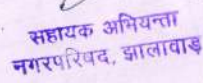 सहायक अभियन्ता
नगरपरिषद, झालावाड़